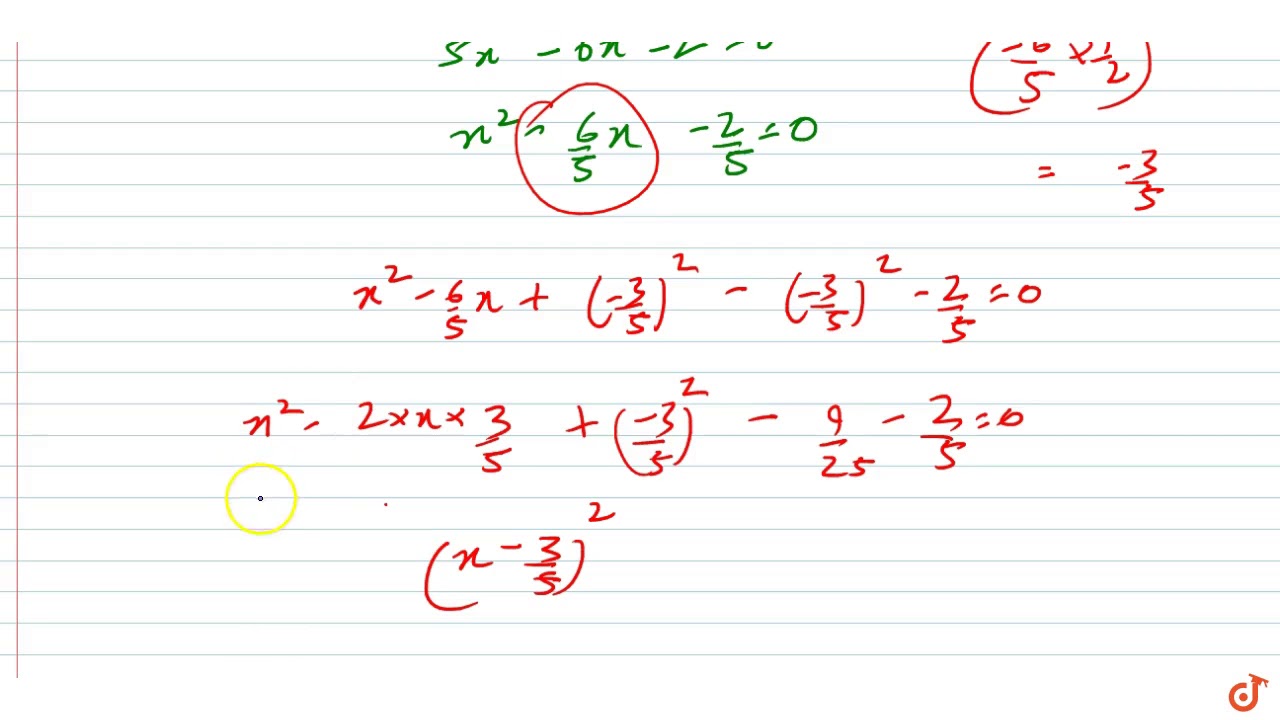 5x² - 6x - 2 = 0
(-6/5 × 1/2)
x² - 6/5 x - 2/5 = 0
= -3/5
x² - 6/5 x + (-3/5)² - (-3/5)² - 2/5 = 0
x² - 2 × x × 3/5 + (-3/5)² - 9/25 - 2/5 = 0
(x - 3/5)²